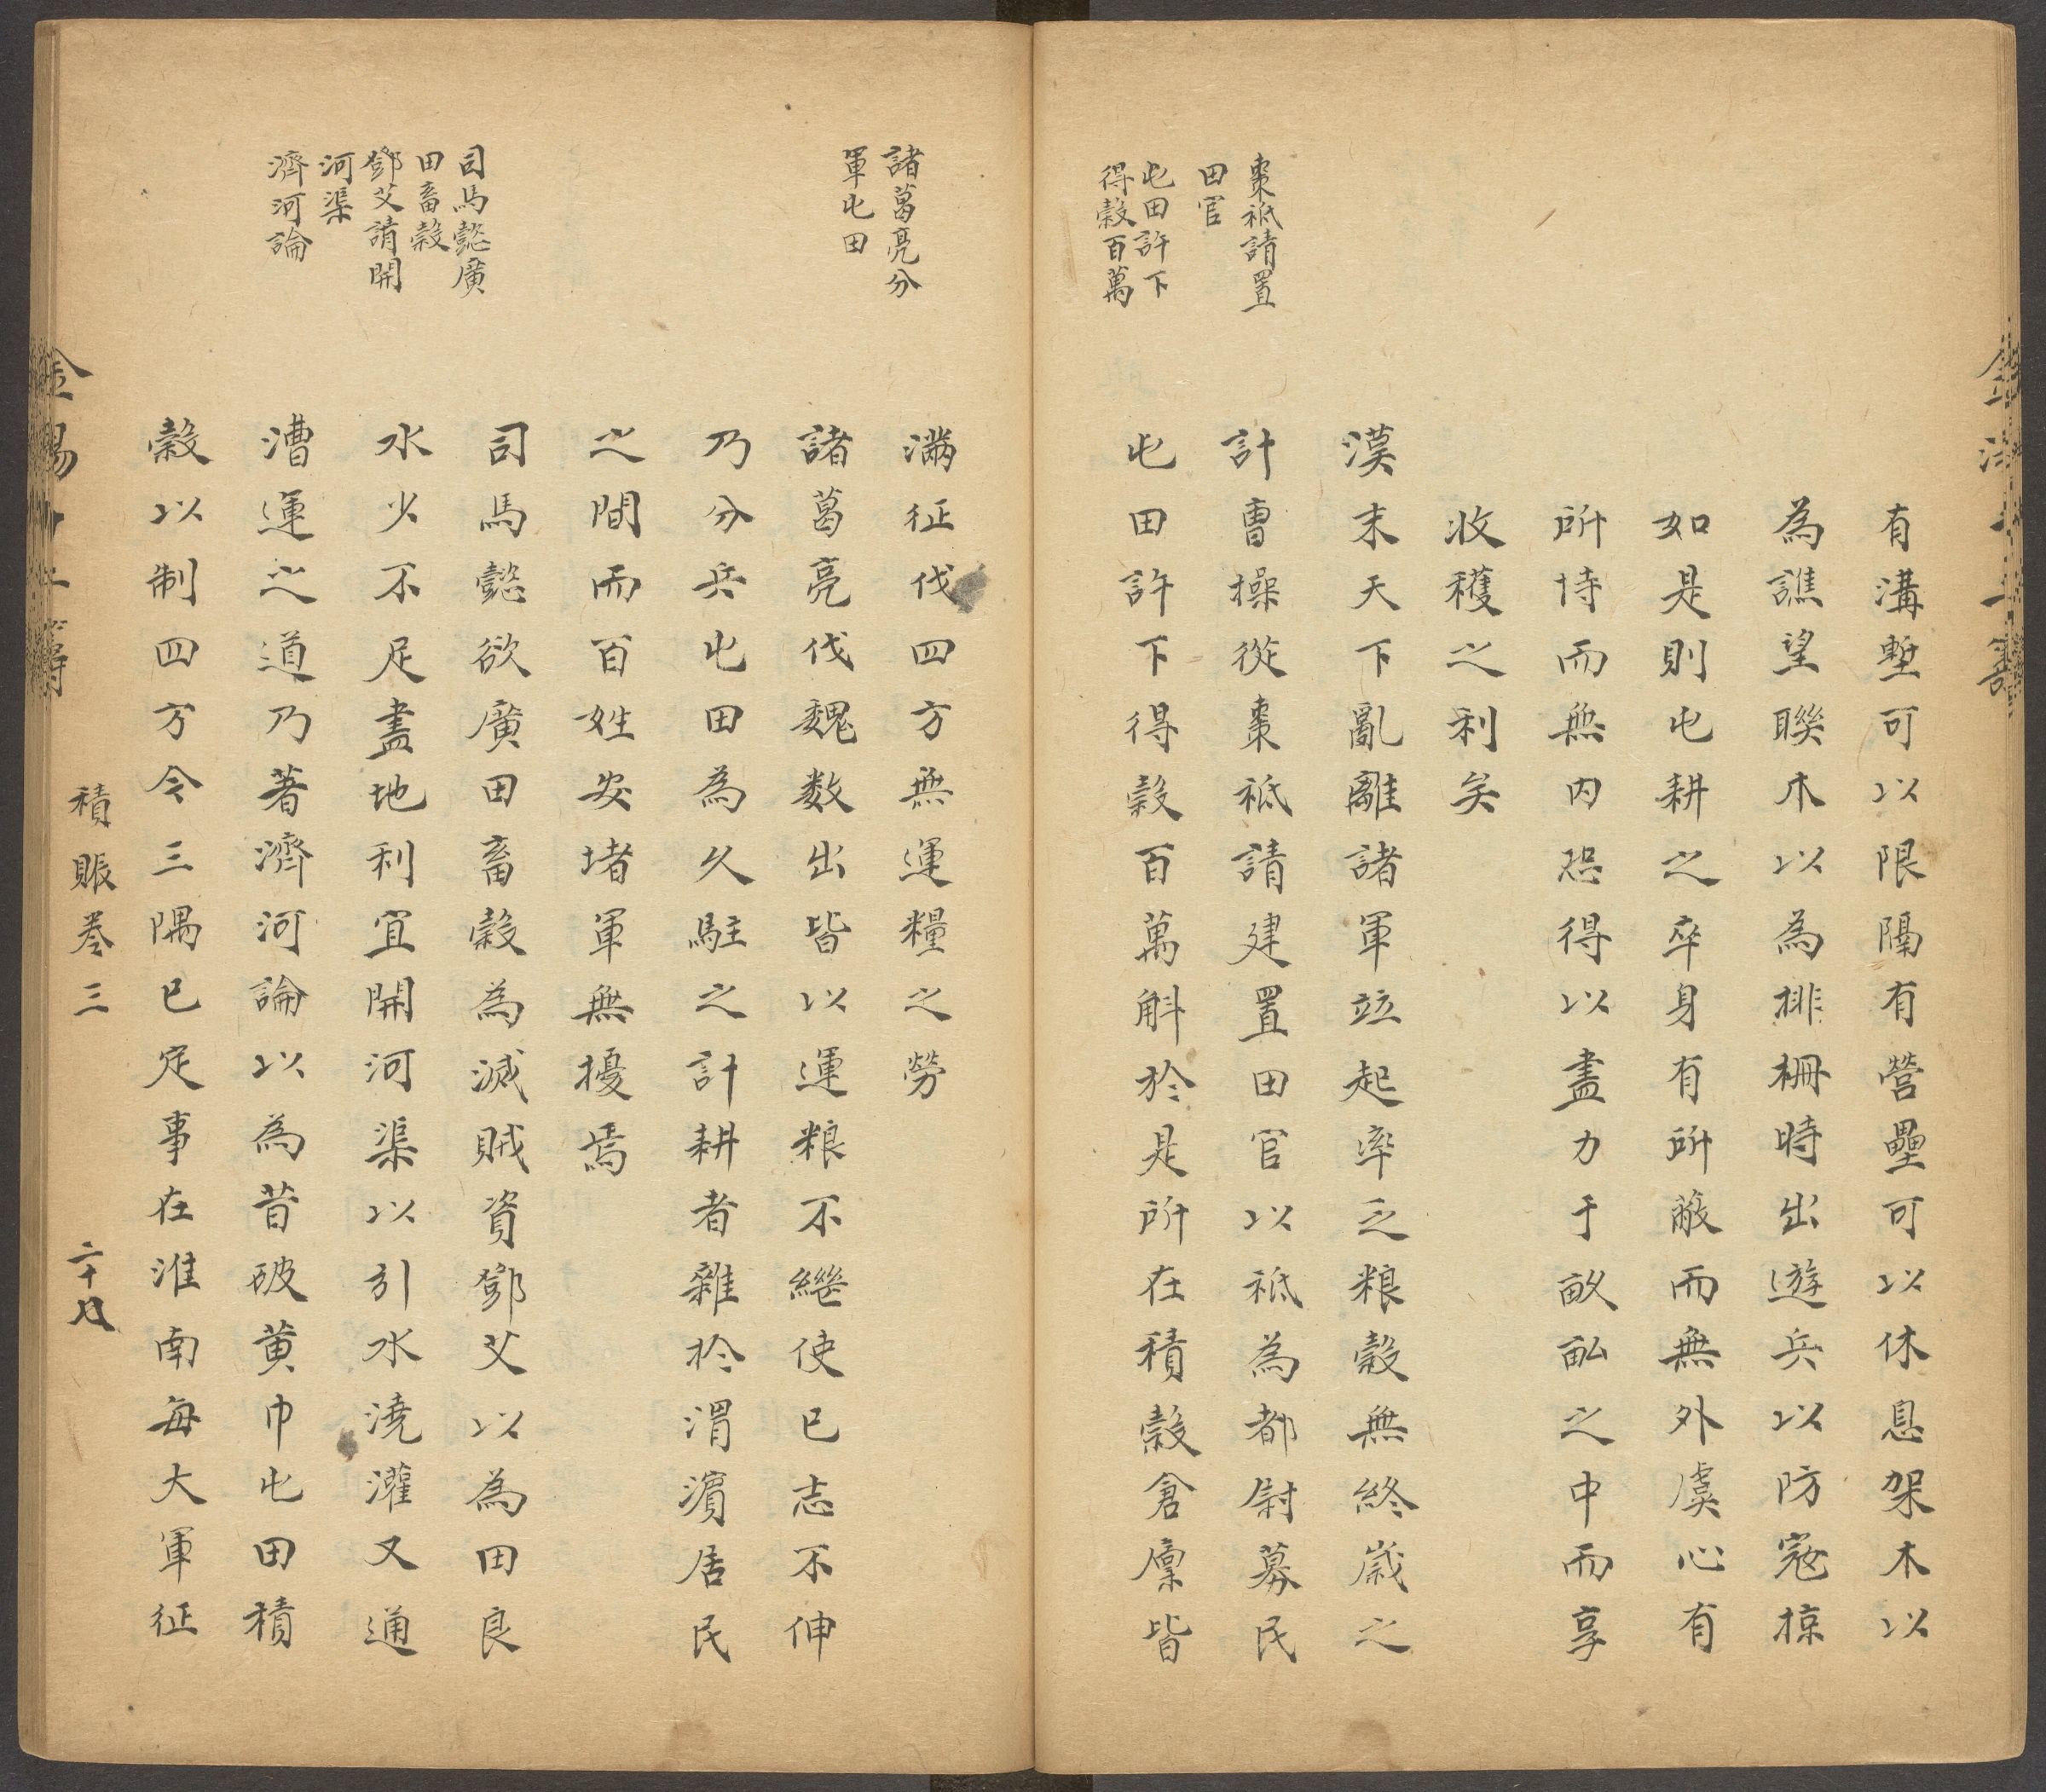 有溝塹可以限隔有營壘可以休息架木以
為譙望聯木以為排柵時出遊兵以防寇掠
如是則屯耕之卒身有所蔽而無外虞心有
所恃而無內恐得以盡力于畝畆之中而享
收穫之利矣
漢末天下亂離諸軍竝起率乏粮穀無終歲之
計曹操從棗祗請建置田官以祗為都尉募民
屯田許下得穀百萬斛於是所在積穀倉廩皆
棗祗請置
田官
屯田許下
得穀百萬
滿征伐四方無運糧之勞
諸葛亮伐魏数出皆以運粮不繼使已志不伸
乃分兵屯田為久駐之計耕者雜於渭濱居民
之間而百姓安堵軍無擾焉
司馬懿欲廣田畜穀為滅賊資鄧艾以為田良
水少不足盡地利宜開河渠以引水澆灌又通
漕運之道乃著濟河論以為昔破黄巾屯田積
穀以制四方令三隅已定事在淮南每大軍征
諸葛亮分
軍屯田
司馬懿廣
田畜穀
鄧艾請開
河渠
濟河論
積賬卷三
二十